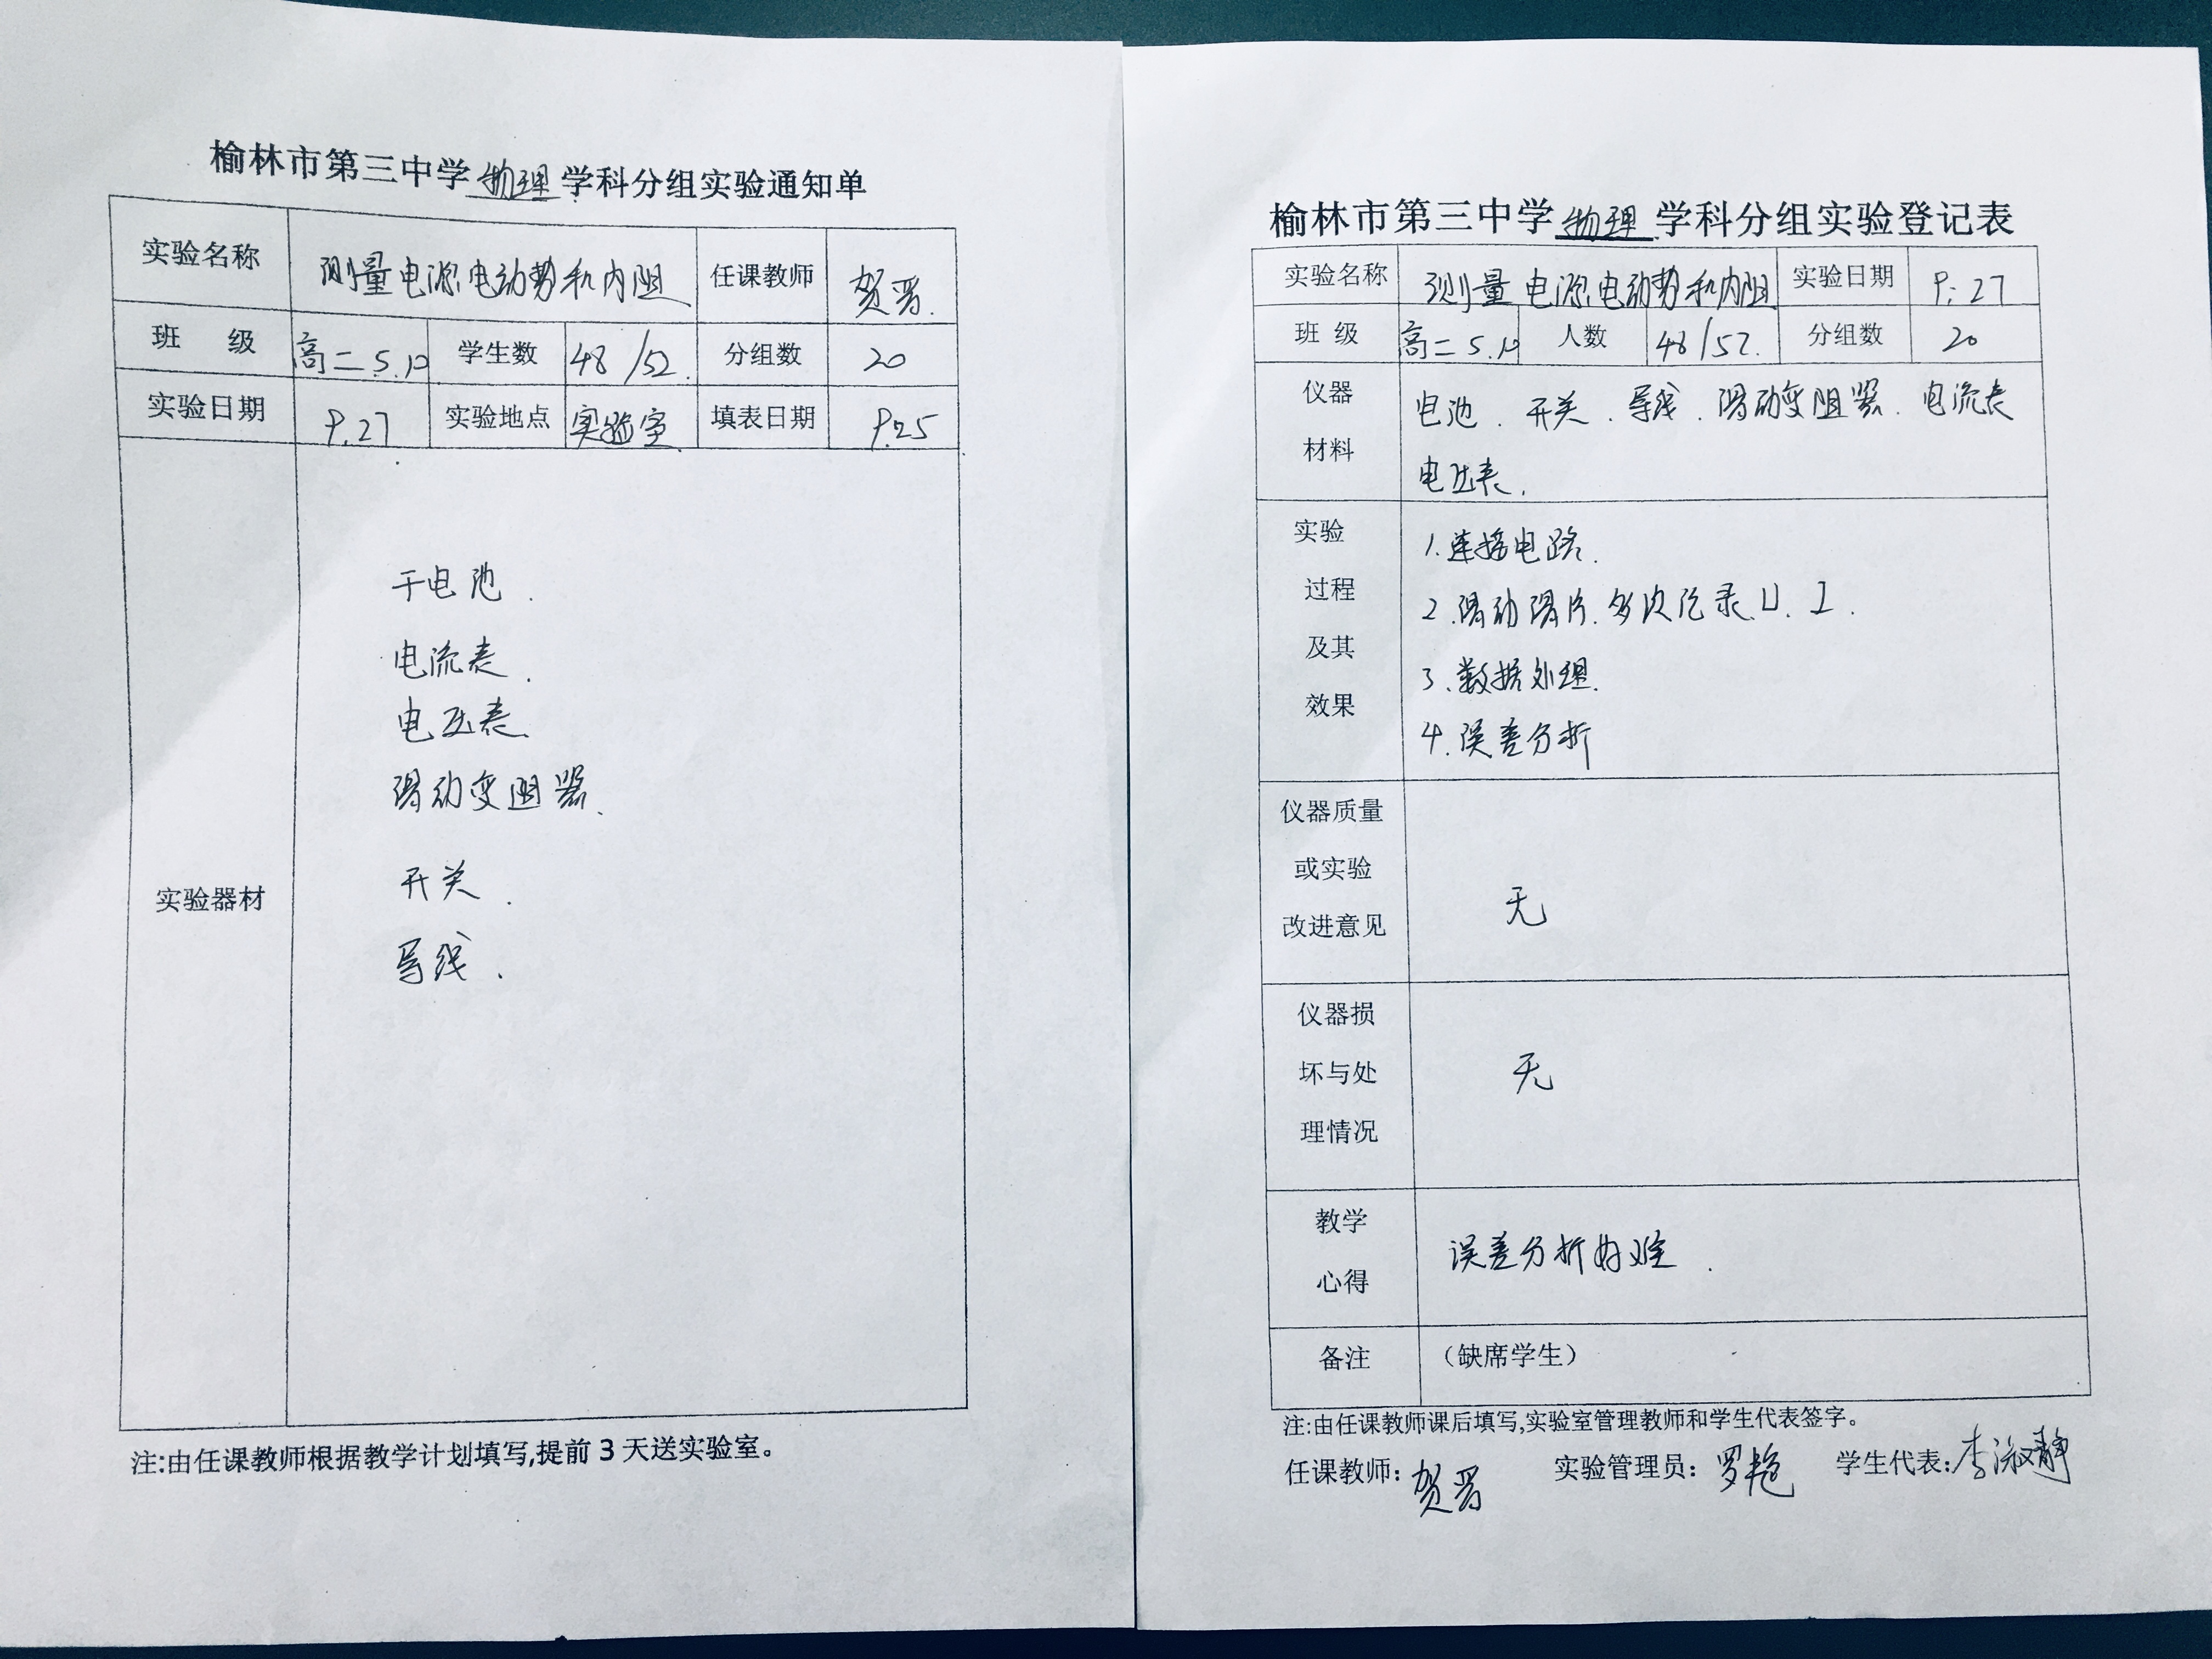 榆林市第三中学物理学科分组实验通知单
实验名称 测量电源电动势和内阻 任课教师 贺晋.
班 级 高二5.10 学生数 48/52. 分组数 20
实验日期 9.27 实验地点 实验室 填表日期 9.25
实验器材
干电池.
电流表.
电压表.
滑动变阻器.
开关.
导线.
注:由任课教师根据教学计划填写,提前3天送实验室。
榆林市第三中学物理学科分组实验登记表
实验名称 测量电源电动势和内阻 实验日期 9.27
班 级 高二5.10 人数 48/52. 分组数 20
仪器
材料
电池.开关.导线.滑动变阻器.电流表
电压表.
实验
过程
及其
效果
1.连接电路.
2.滑动滑片.多次记录U.I.
3.数据处理.
4.误差分析
仪器质量
或实验
改进意见
无
仪器损
坏与处
理情况
无
教学
心得
误差分析好难.
备注 （缺席学生）
注:由任课教师课后填写,实验室管理教师和学生代表签字。
任课教师:贺晋 实验管理员:罗艳 学生代表:李淑静